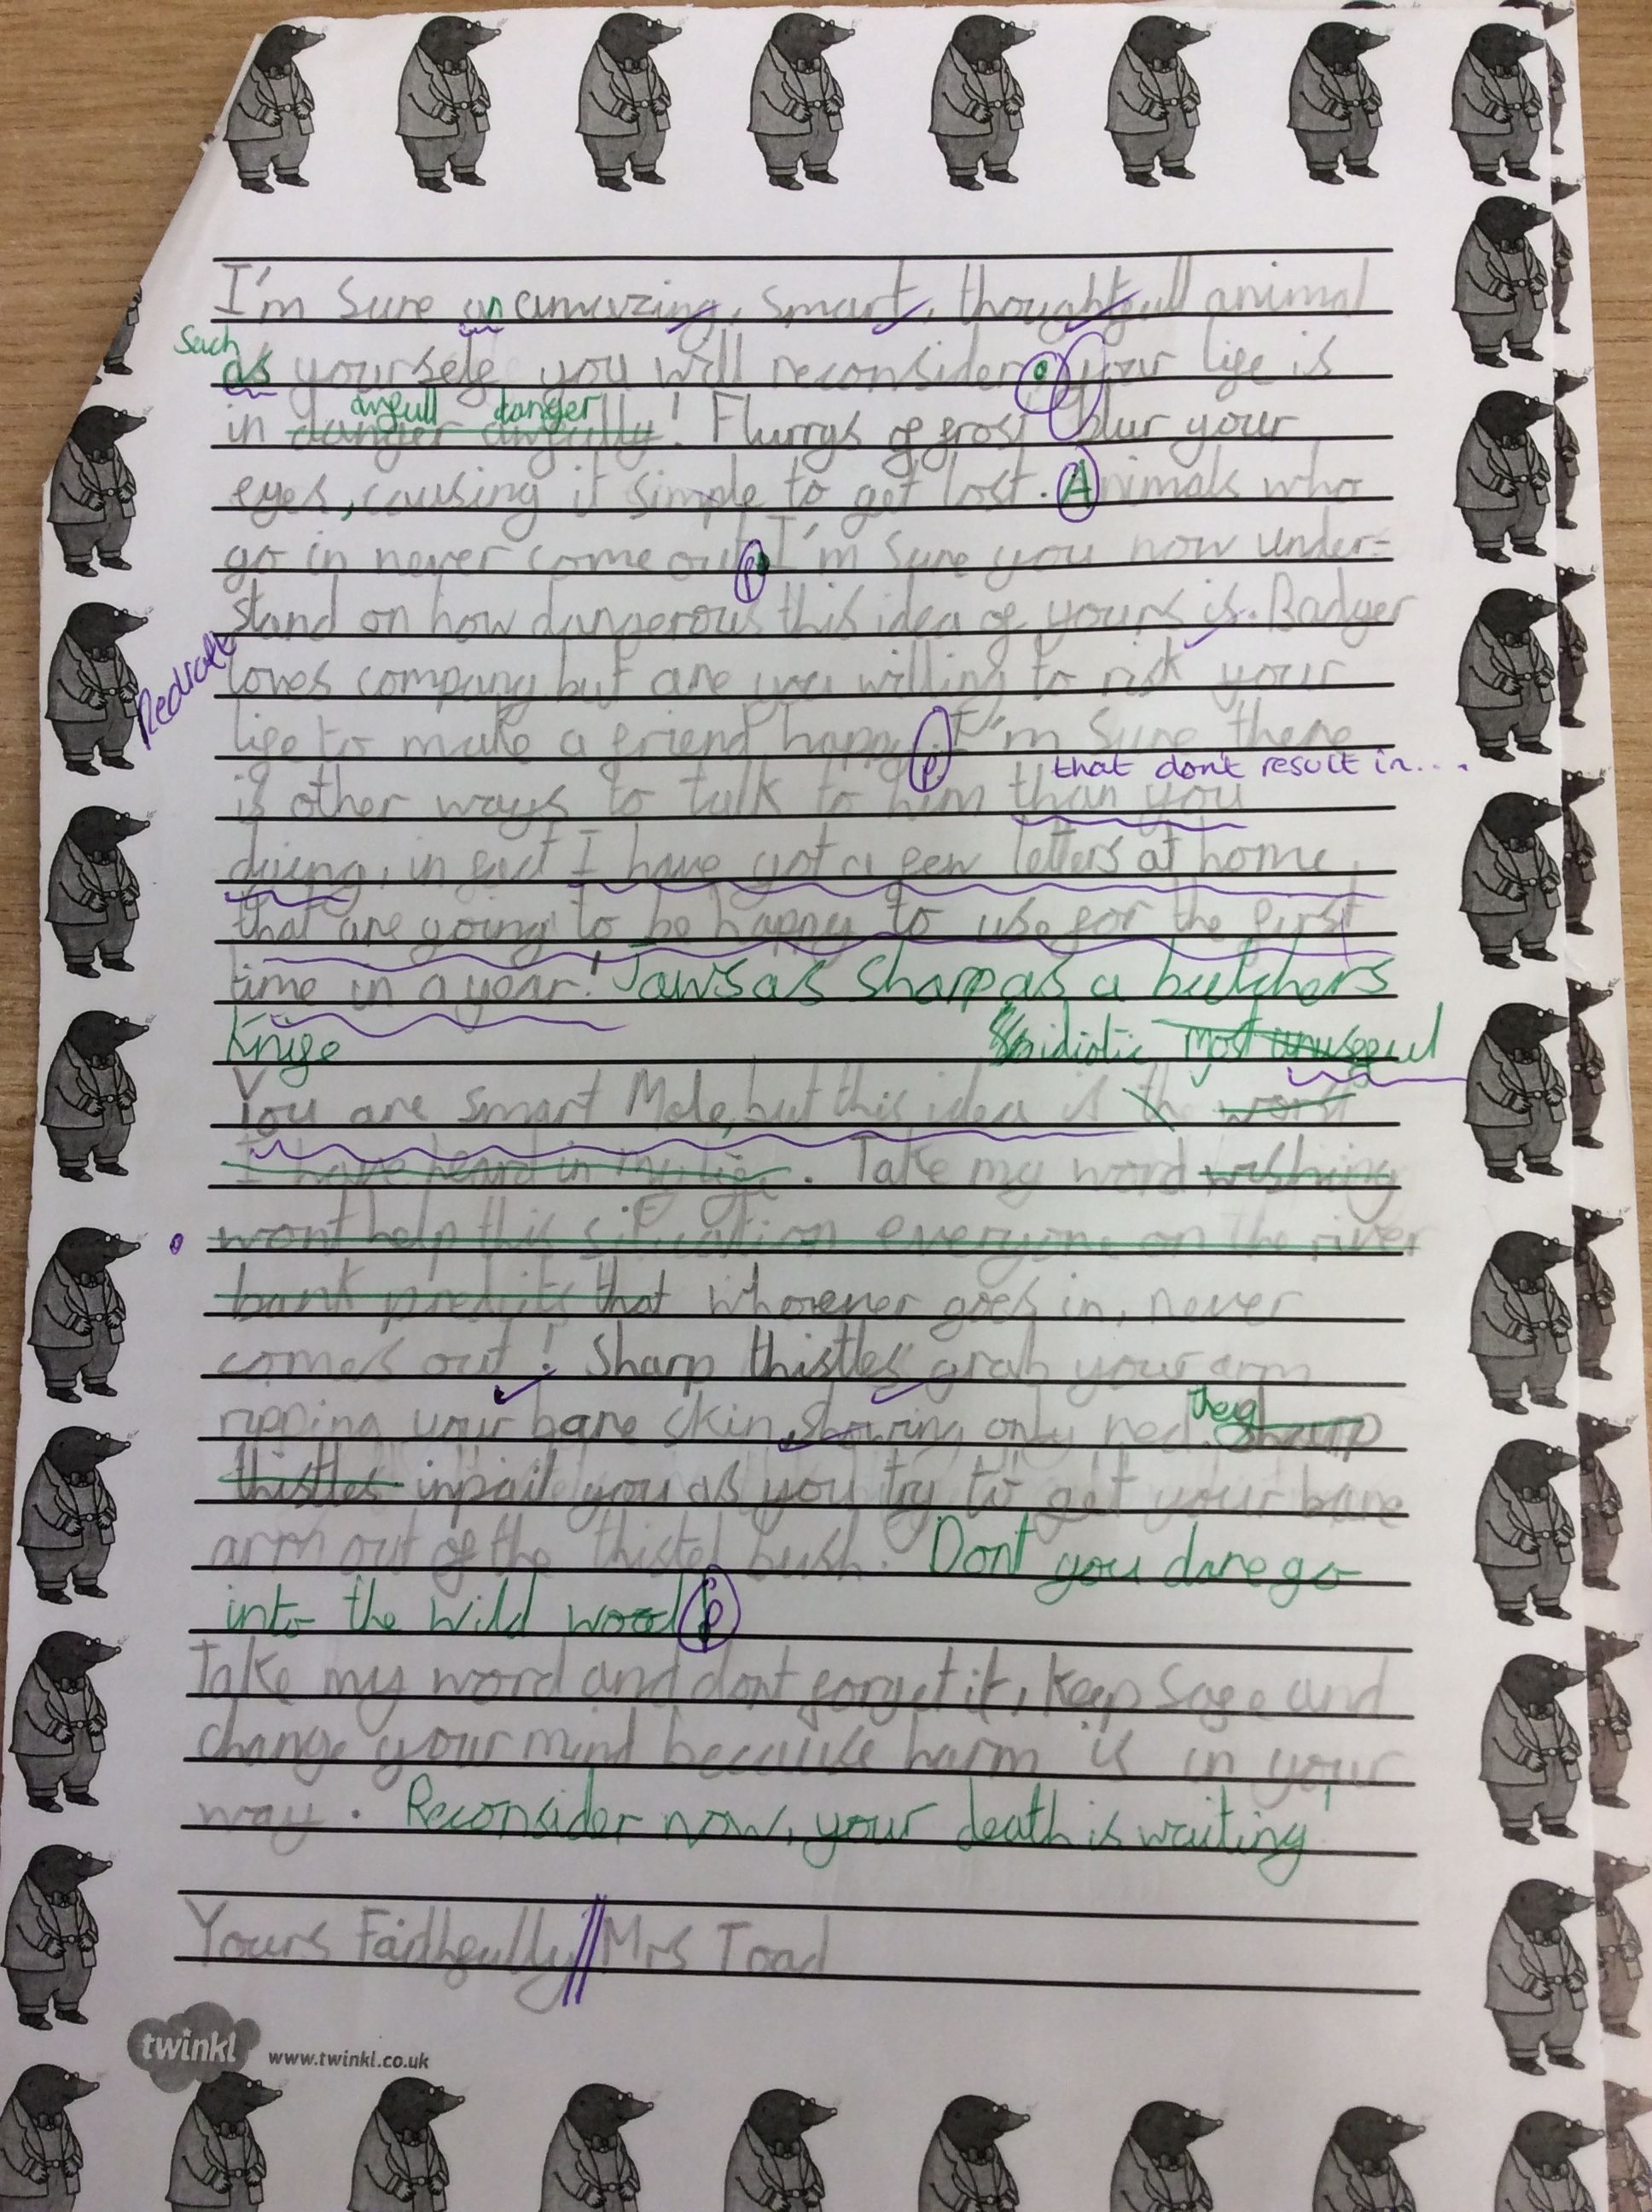 I'm sure an amazing, smart, thoughtfull animal
Such
as yourself you will reconsider. your life is
awfull danger
in danger awfully! Flurrys of frost blur your
eyes, causing it simple to get lost. Animals who
go in never come out. I'm sure you now under-
stand on how dangerous this idea of yours is. Badger
loves company but are you willing to risk your
life to make a friend happy. I'm sure there
that don't result in....
is other ways to talk to him than you
dieing, in fact I have got a few letters at home
that are going to be happy to use for the first
time in a year! Jaws as sharp as a butchers
knife
idiotic most unusefull
You are smart Mole, but this idea is the worst
I have heard in my life. Take my word wishing
wont help this situation everyone on the river
bank predicts that whoever goes in, never
comes out! Sharp thistles grab your arm
ripping your bare skin, showing only red.
they
sharp
thistles inpail you as you try to get your bare
arm out of the thistel bush. Dont you dare go
into the wild wood!
Take my word and dont forget it, keep safe and
change your mind because harm is in your
way. Reconsider now, your death is waiting!
Yours Faithfully // Mrs Toad
twinkl www.twinkl.co.uk